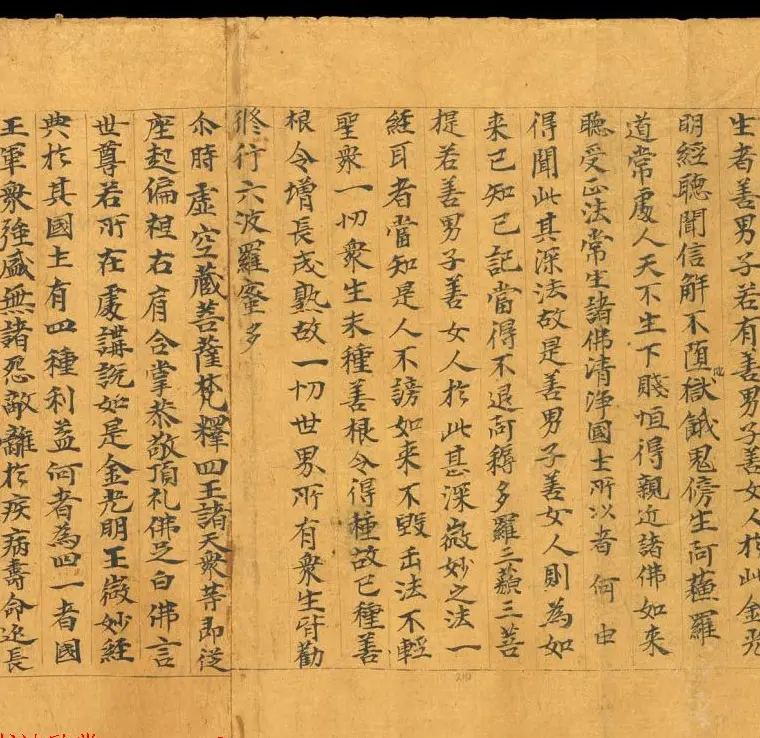 生者善男子若有善男子善女人於此金光
明經聽聞信解不堕地獄餓鬼傍生阿蘓羅
道常處人天不生下賤恒得親近諸佛如来
聽受正法常生諸佛清淨國土所以者何由
得聞此其深法故是善男子善女人則為如
来已知已記當得不退阿耨多羅三藐三菩
提若善男子善女人於此甚深微妙之法一
經耳者當知是人不謗如来不毀正法不輕
聖衆一切衆生未種善根令得種故已種善
根令增長成熟故一切世界所有衆生皆勸
修行六波羅蜜多
尒時虛空藏菩薩梵釋四王諸天衆等即從
座起偏袒右肩合掌恭敬頂礼佛足白佛言
世尊若所在處講說如是金光明王微妙經
典於其國土有四種利益何者為四一者國
王軍衆強盛無諸怨敵離於疾病壽命延長